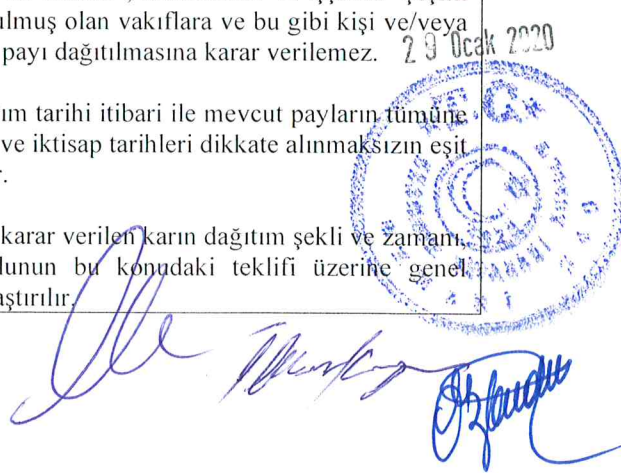 ulmuş olan vakıflara ve bu gibi kişi ve/veya
payı dağıtılmasına karar verilemez.
29 Ocak 2020
ım tarihi itibari ile mevcut payların tümüne
ve iktisap tarihleri dikkate alınmaksızın eşit
r.
karar verilen karın dağıtım şekli ve zamanı,
lunun bu konudaki teklifi üzerine genel
aştırılır.
T.C.